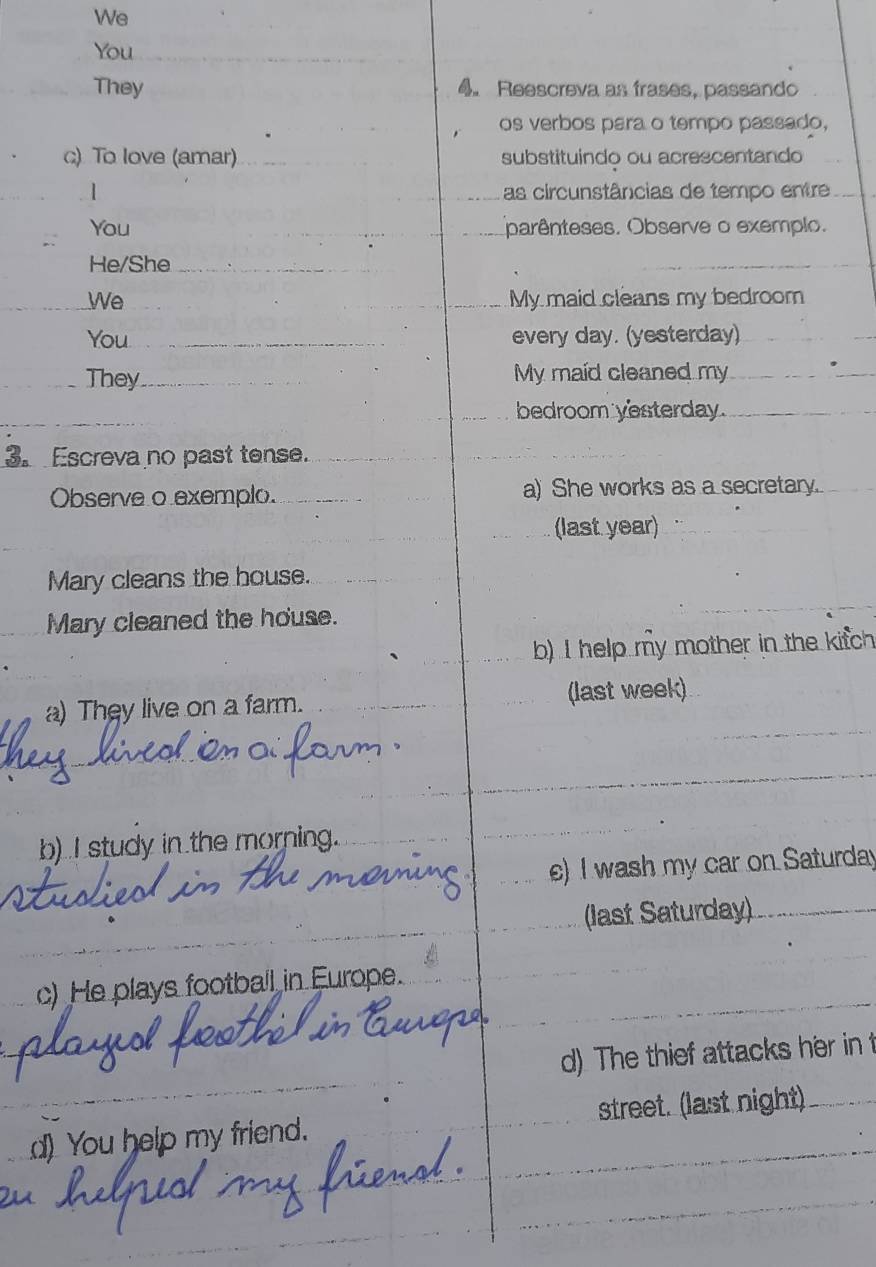 We
You
They
c) To love (amar)
I
You
He/She
We
You
They
3. Escreva no past tense.
Observe o exemplo.
Mary cleans the house.
Mary cleaned the house.
a) They live on a farm.
they lived on a farm.
b) I study in the morning.
studied in the morning.
c) He plays football in Europe.
played foothel in Europe.
d) You help my friend.
ou helped my friend.
4. Reescreva as frases, passando
os verbos para o tempo passado,
substituindo ou acrescentando
as circunstâncias de tempo entre
parênteses. Observe o exemplo.
My maid cleans my bedroom
every day. (yesterday)
My maid cleaned my
bedroom yesterday.
a) She works as a secretary.
(last year)
b) I help my mother in the kitch
(last week)
c) I wash my car on Saturday
(last Saturday)
d) The thief attacks her in t
street. (last night)